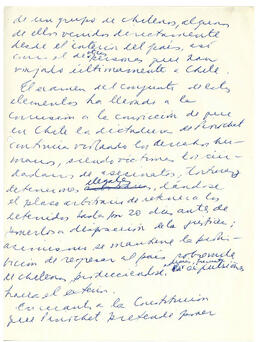 de un grupo de chilenos, algunos
de ellos venidos directamente
desde el interior del país, así
con el de personas que han
viajado últimamente a Chile.
El examen del conjunto de estos
elementos ha llevado a la
comisión a la convicción de que
en Chile la dictadura de Pinochet
continúa violando los derechos hu-
manos, siendo víctimas los ciu-
dadanos de asesinatos, torturas
detenciones ilegales, dándose
el plazo arbitrario de retener a los
detenidos hasta por 20 días antes de
ponerlos a disposición de la justicia;
asimismo se mantiene la prohi-
bición de regresar al país
de chilenos
hacia el exterior.
En cuanto a la Constitución
que Pinochet pretende poner